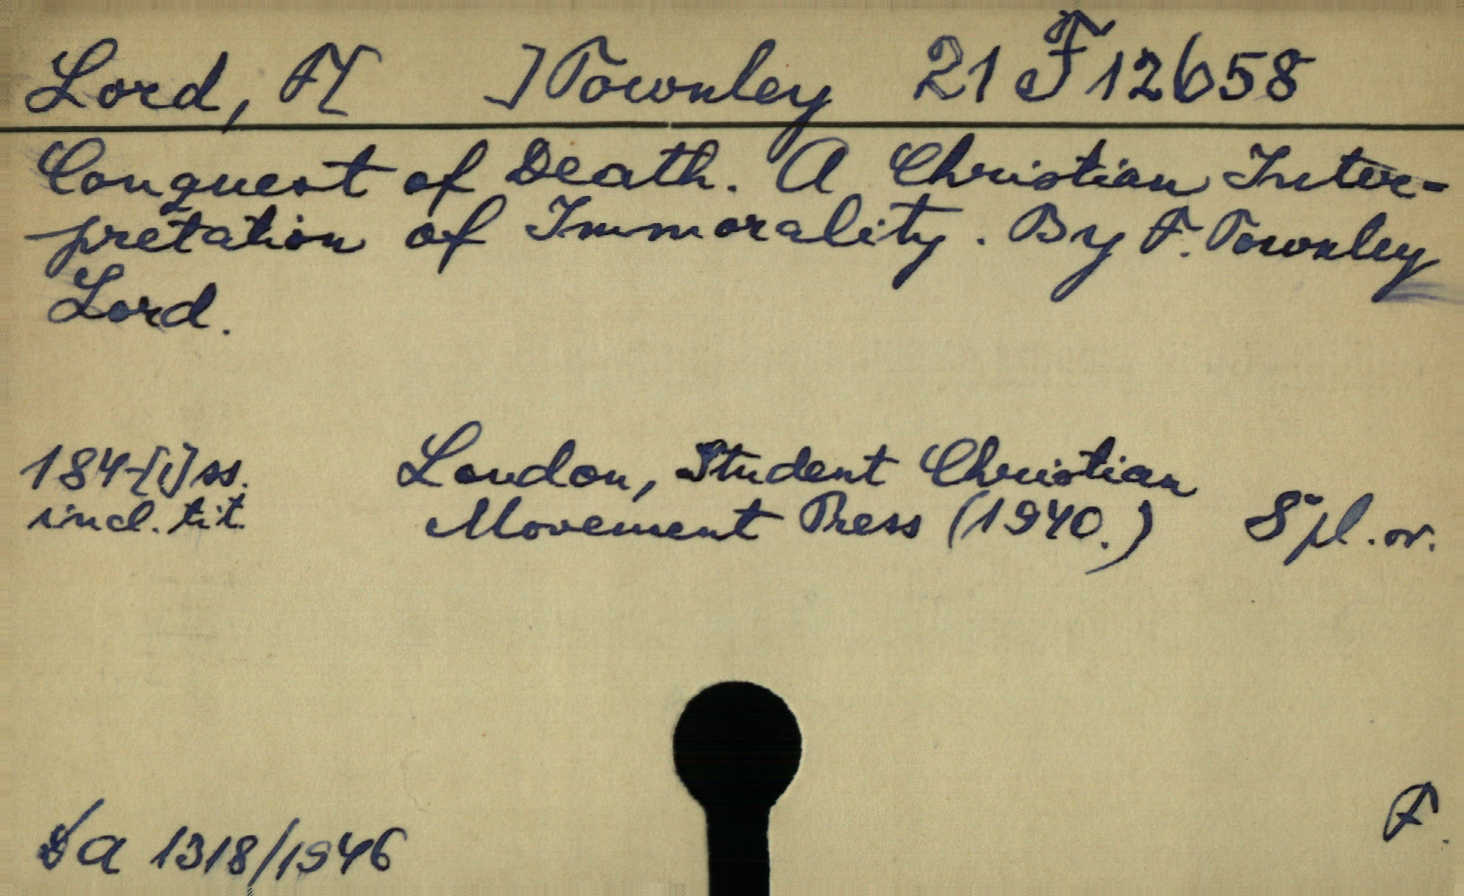 Lord, F[ ] Townley 21 F 12658
Conquest of Death. A Christian Inter-
pretation of Immorality. By F. Townley
Lord.
184-[1] ss. London, Student Christian
incl. tit. Movement Press (1940.) 8° pl. or.
a 1318/1946
F.